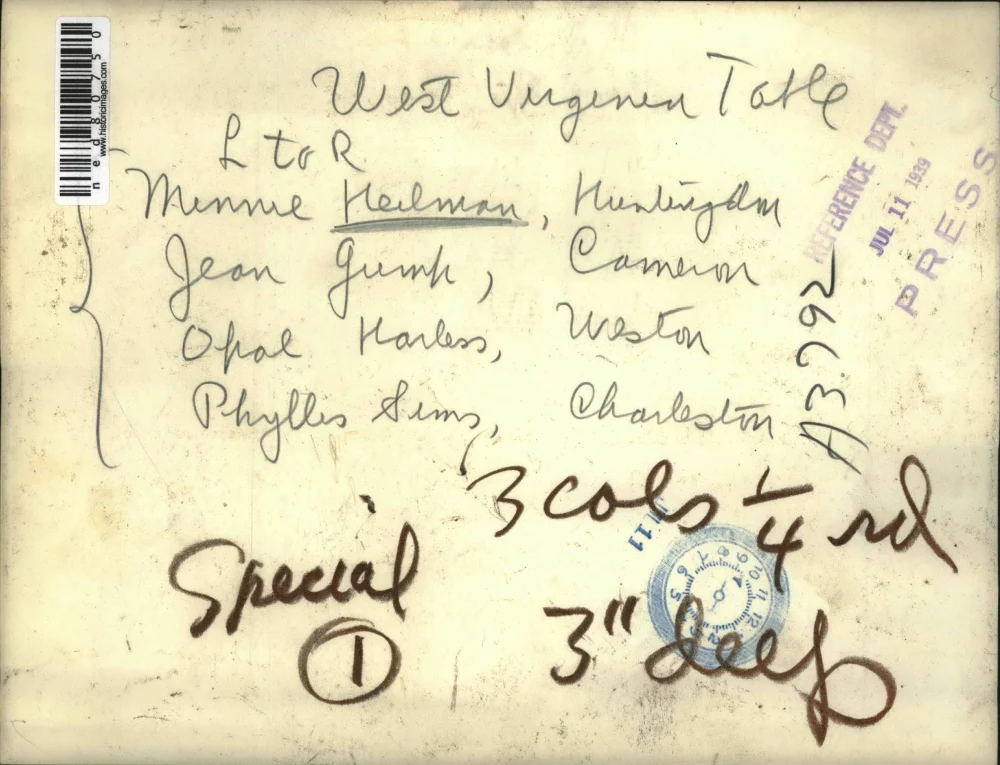 West Virginia Table
L to R
Minnie Heilman, Huntingdon
Jean Gump, Cameron
Opal Harless, Weston
Phyllis Sims, Charleston
REFERENCE DEPT.
JUL 11 1939
PRESS
A3792
3 cols 1/4 rd
Special
1
3" deep
JUL 11
5 6 7 8 9 10 11 12
ned880750
www.historicimages.com